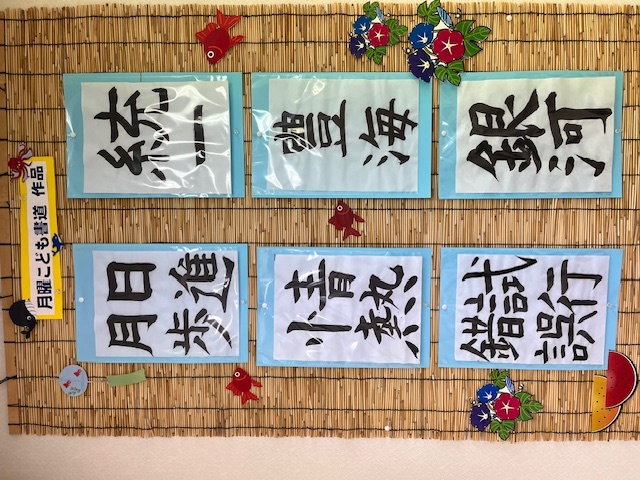 月曜こども書道 作品
統一
豊海
銀河
日進
月歩
情熱
試行
錯誤